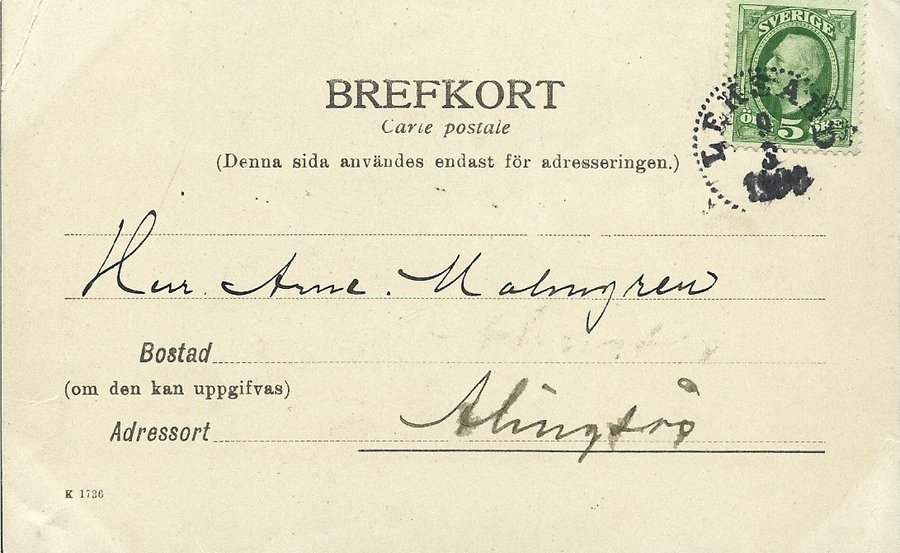 SVERIGE
ÖRE 5 ÖRE
BREFKORT
Carte postale
(Denna sida användes endast för adresseringen.)
9
3
Herr. Arne. Malmgren
Bostad
(om den kan uppgifvas)
Adressort Alingsås
K 1736